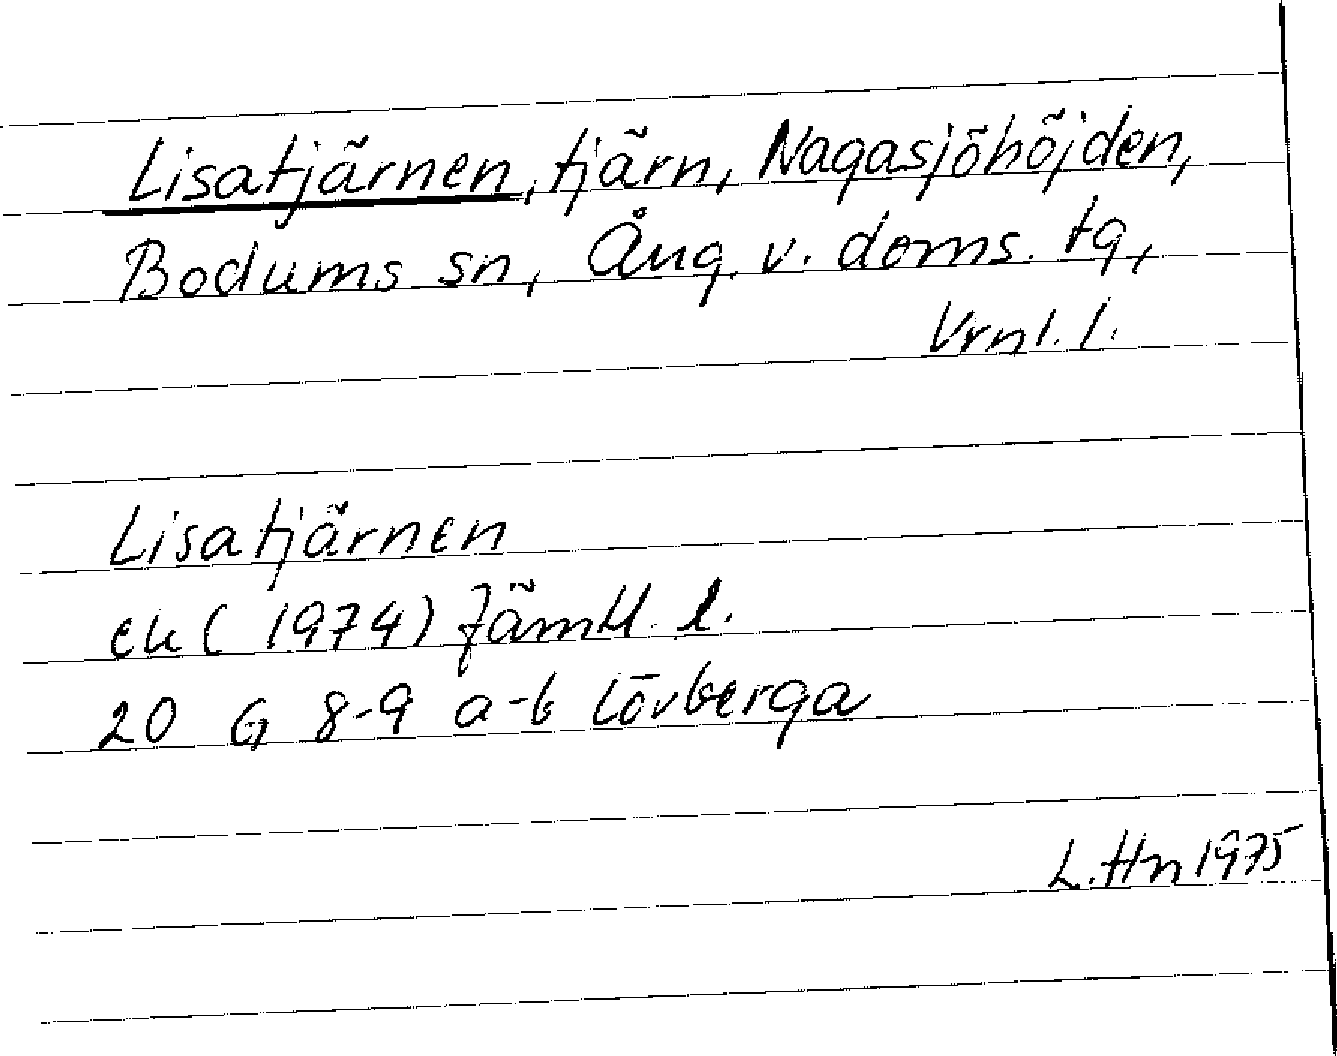 Lisatjärnen, tjärn, Nagasjöhöjden,
Bodums sn, Ång. v. doms. tg,
Vrnl. l.
Lisatjärnen
ek (1974) Jämtl. l.
20 G 8-9 a-b Lövberga
L. Hn 1975